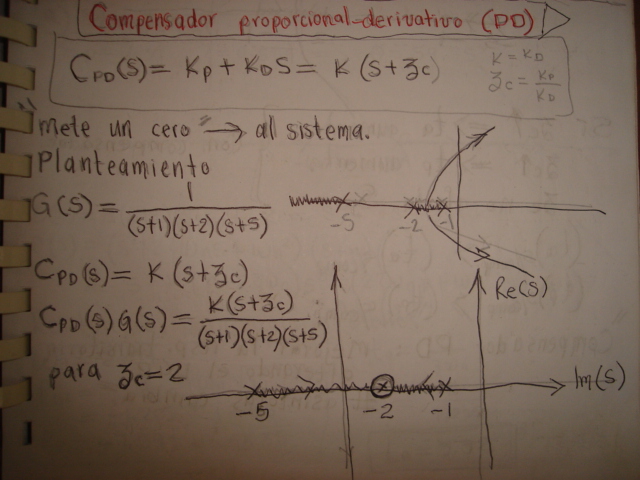 Compensador proporcional-derivativo (PD)
C_PD(s) = K_P + K_D S = K (s + z_c)
K = K_D
z_c = K_P / K_D
"mete un cero" → al sistema.
Planteamiento
G(s) = 1 / (s+1)(s+2)(s+5)
-5 -2 -1
C_PD(s) = K (s + z_c)
Re(s)
C_PD(s) G(s) = K(s + z_c) / (s+1)(s+2)(s+5)
para z_c = 2
Im(s)
-5 -2 -1